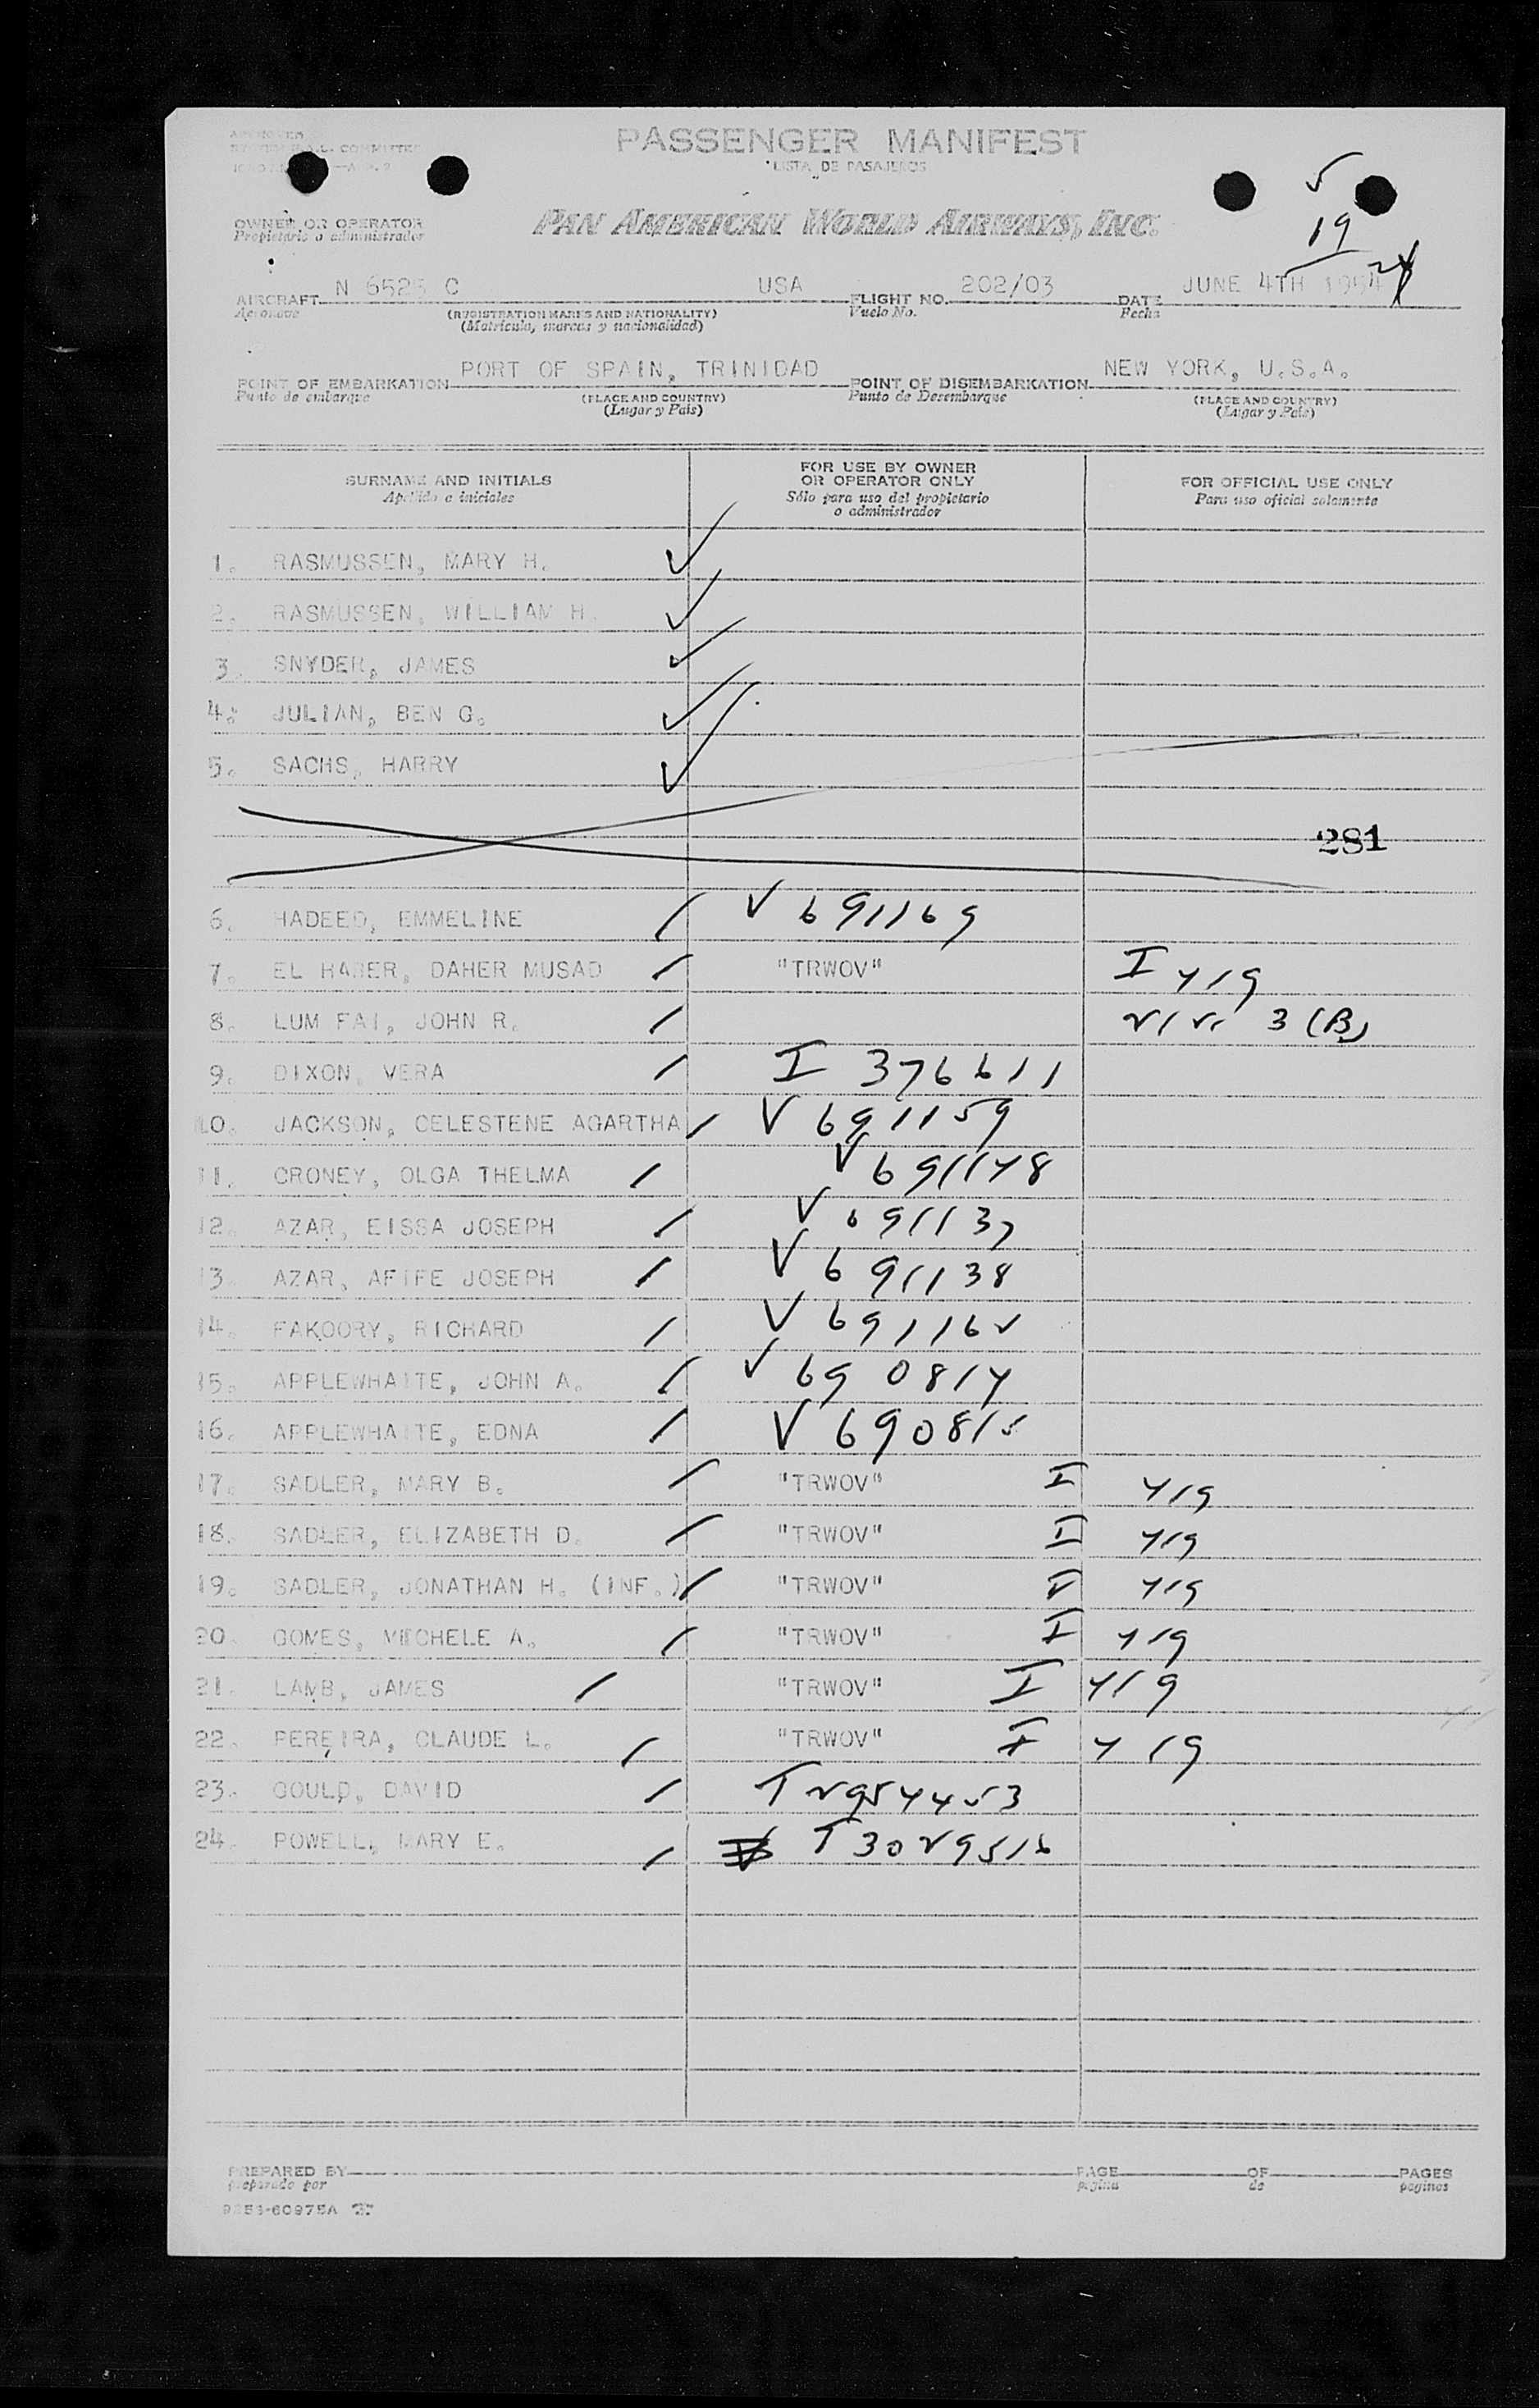 PASSENGER MANIFEST
LISTA DE PASAJEROS
COMMITTEE
5
19
24
OWNER OR OPERATOR
Propietario o administrador
PAN AMERICAN WORLD AIRWAYS, INC.
AIRCRAFT N 6525 C USA FLIGHT NO. 202/03 DATE JUNE 4TH 1954
Aeronave (REGISTRATION MARKS AND NATIONALITY) Vuelo No. Fecha
(Matricula, marcas y nacionalidad)
POINT OF EMBARKATION PORT OF SPAIN, TRINIDAD POINT OF DISEMBARKATION NEW YORK, U.S.A.
Punto de embarque (PLACE AND COUNTRY) Punto de Desembarque (PLACE AND COUNTRY)
(Lugar y Pais) (Lugar y Pais)
SURNAME AND INITIALS FOR USE BY OWNER OR OPERATOR ONLY FOR OFFICIAL USE ONLY
Apellido e iniciales Sólo para uso del propietario o administrador Para uso oficial solamente
1. RASMUSSEN, MARY H.
2. RASMUSSEN, WILLIAM H.
3. SNYDER, JAMES
4. JULIAN, BEN G.
5. SACHS, HARRY
281
6. HADEED, EMMELINE V 691169
7. EL HABER, DAHER MUSAD "TRWOV" I 419
8. LUM FAI, JOHN R. 3 (B)
9. DIXON, VERA I 376611
10. JACKSON, CELESTENE AGARTHA V 691159
11. CRONEY, OLGA THELMA V 691148
12. AZAR, EISSA JOSEPH V 691137
13. AZAR, AFIFE JOSEPH V 691138
14. FAKOORY, RICHARD V 691162
15. APPLEWHAITE, JOHN A. V 690814
16. APPLEWHAITE, EDNA V 690815
17. SADLER, MARY B. "TRWOV" I 419
18. SADLER, ELIZABETH D. "TRWOV" I 419
19. SADLER, JONATHAN H. (INF.) "TRWOV" I 419
20. GOMES, MICHELE A. "TRWOV" I 419
21. LAMB, JAMES "TRWOV" I 419
22. PEREIRA, CLAUDE L. "TRWOV" I 419
23. GOULD, DAVID T 2954453
24. POWELL, MARY E. T 3029516
PREPARED BY PAGE OF PAGES
preparado por pagina de paginas